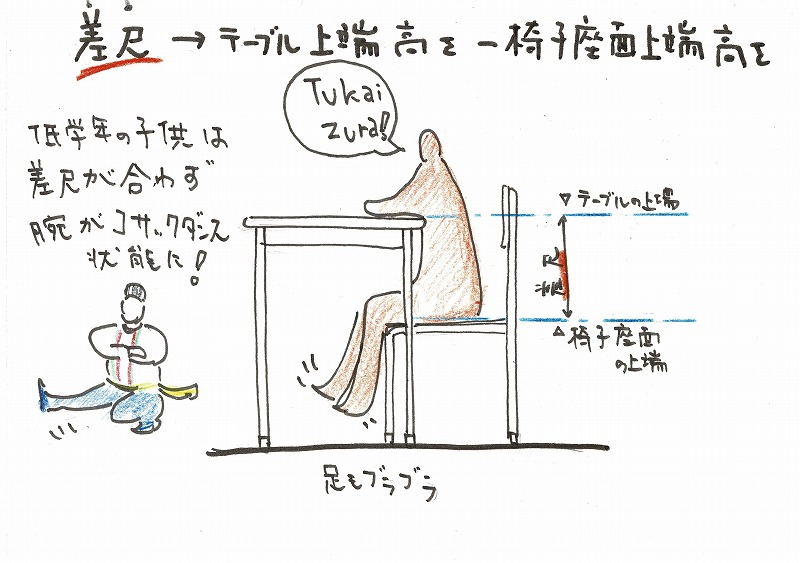 差尺 → テーブル上端高さ － 椅子座面上端高さ
Tukai
zura!
低学年の子供は
差尺が合わず
腕がコサックダンス
状態に!
▽テーブルの上端
差尺
△椅子座面
の上端
足もブラブラ